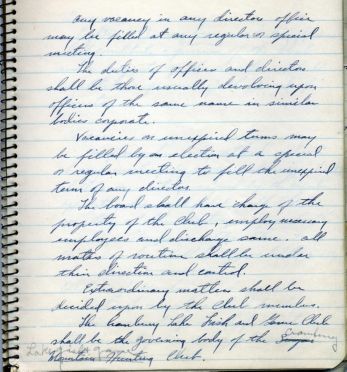 any vacancy in any directors office
may be filled at any regular or special
meeting.
The duties of officers and directors
shall be those usually devolving upon
officers of the same name in similar
bodies corporate.
Vacancies or unexpired terms may
be filled by an election at a special
or regular meeting to fill the unexpired
term of any director.
The board shall have charge of the
property of the Club, employ necessary
employees and discharge same. all
matters of routine shall be under
their direction and control.
Extraordinary matters shall be
decided upon by the Club members.
The Cranbury Lake Fish and Game Club
Cranbury
shall be the governing body of the
Lake
Mountain Hunting Club.